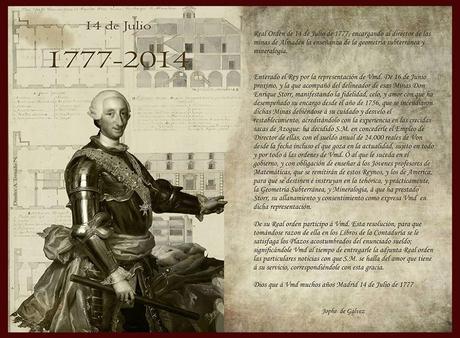 14 de Julio
1777-2014
Real Orden de 14 de Julio de 1777, encargando al director de las
minas de Almadén la enseñanza de la geometria subterránea y
mineralogia.
Enterado el Rey por la representación de Vmd. De 16 de Junio
proximo, y la que acompañó del delineador de esas Minas Don
Enrique Storr, manifestando la fidelidad, celo, y amor con que ha
desempeñado su encargo desde el año de 1756, que se incendiaron
dichas Minas debiéndose à su cuidado y desvelo el
restablecimiento, acreditándolo con la experiencia en las crecidas
sacas de Azogue: ha decidido S.M. en concederle el Empleo de
Director de ellas, con el sueldo anual de 24.000 reales de Von
desde la fecha incluso el que goza en la actualidad, sujeto en todo
y por todo à las ordenes de Vmd. O al que le suceda en el
gobierno, y con obligación de enseñar à los Jóvenes profesores de
Matemáticas, que se remitirán de estos Reynos, y los de America,
para que se destinen è instruyen en la tehórica, y prácticamente,
la Geometría Subterránea, y Mineralogía, à que ha prestado
Storr, su allanamiento y consentimiento como expresa Vmd en
dicha representación.
De su Real orden participo à Vmd. Esta resolución, para que
tomándose razon de ella en los Libros de la Contaduría se le
satisfaga los Plazos acostumbrados del enunciado sueldo;
significándole Vmd al tiempo de entregarle la adjunta Real orden
las particulares noticias con que S.M. se halla del amor que tiene
à su servicio, correspondiéndole con esta gracia.
Dios que à Vmd muchos años Madrid 14 de Julio de 1777
Jophe de Gálvez